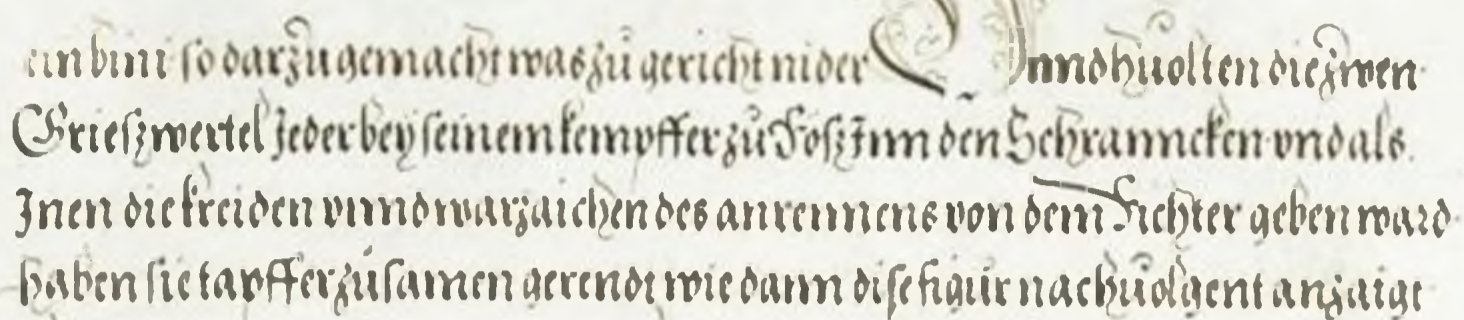 ein bini so darzů gemacht was zů gericht nider Vnnd hůolten die zwen
Grieszwertel Jeder bey seinem kempffer zů Rosz Inn den Schranncken vnd als
Inen die kreiden vnnd warzaichen des anrennens von dem Richter geben ward
haben sie tapffer zůsamen gerendt wie dann dise figůr nachůolgent anzaigt